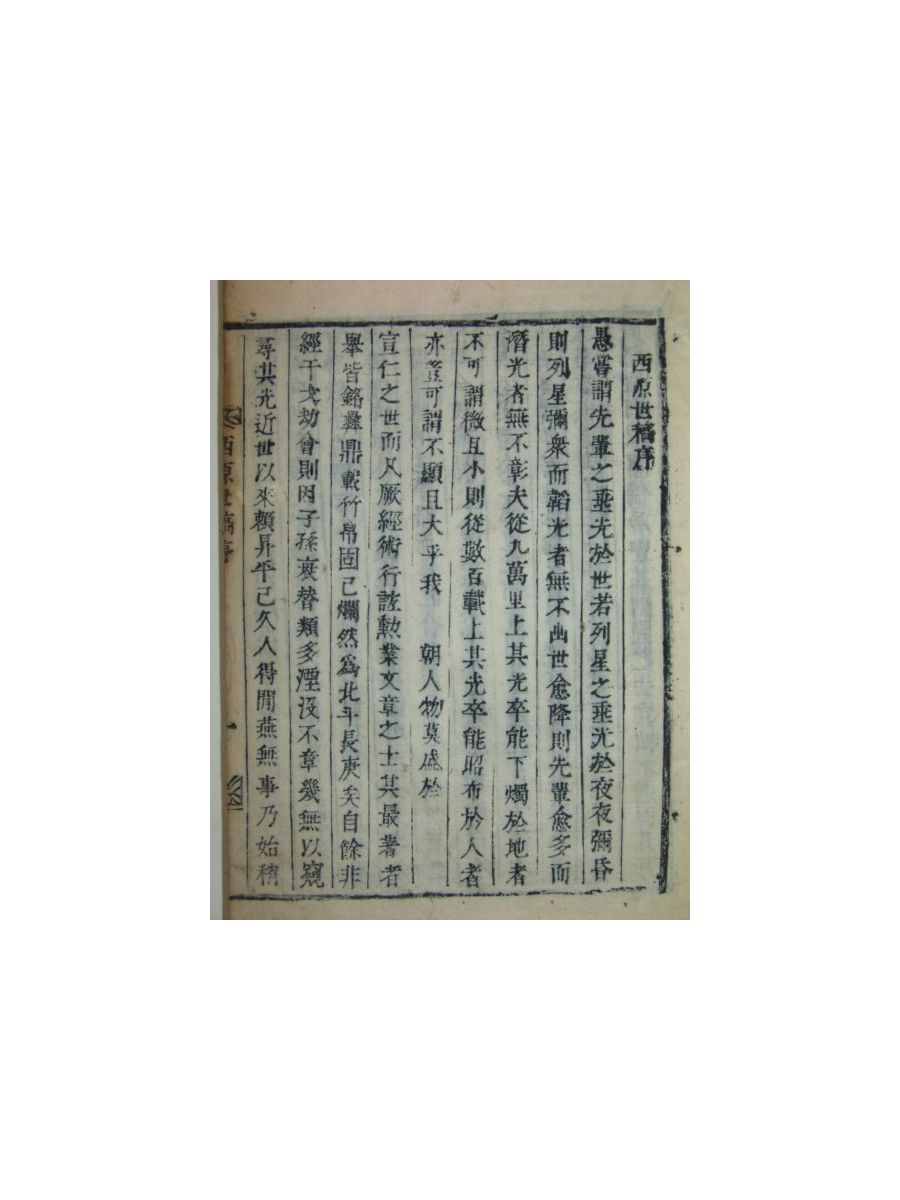 西原世稿序
愚嘗謂先輩之垂光於世若列星之垂光於夜夜彌昏
則列星彌衆而韜光者無不幽世愈降則先輩愈多而
潛光者無不彰夫從九萬里上其光卒能下燭於地者
不可謂微且小則從數百載上其光卒能昭布於人者
亦豈可謂不顯且大乎我 朝人物莫盛於
宣仁之世而凡厥經術行誼勳業文章之士其最著者
舉皆銘彝鼎載竹帛固已爛然爲北斗長庚矣自餘非
經干戈劫會則因子孫衰替類多湮沒不章幾無以窺
尋其光近世以來賴昇平已久人得閒燕無事乃始稍
西原世稿序